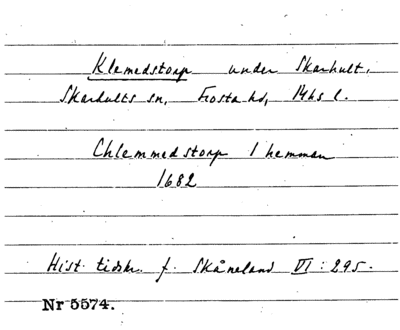 Klemedstorp under Skarhult,
Skarhults sn, Frosta hd, Mhs l.
Chlemmedstorp 1 hemman
1682
Hist. tidskr. f. Skåneland VI : 295.
Nr 5574.